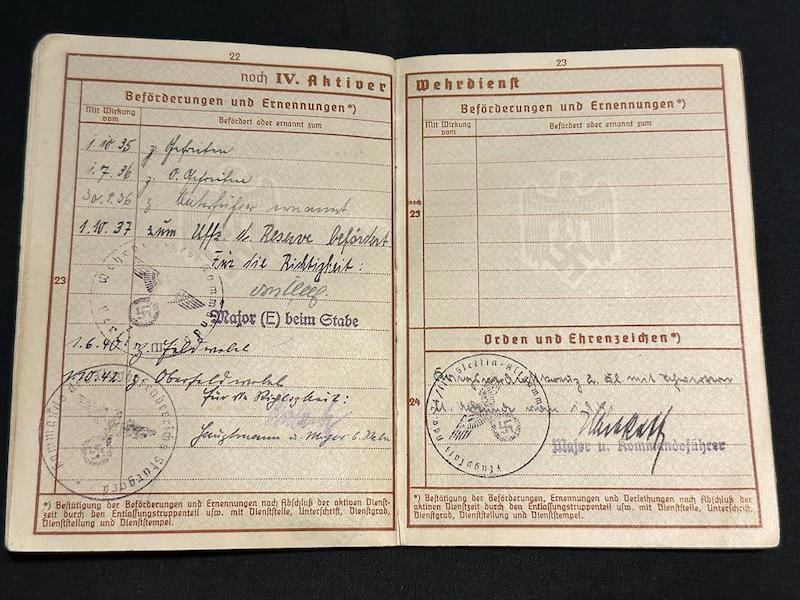 22
noch IV. Aktiver
Beförderungen und Ernennungen*)
Mit Wirkung vom
Befördert oder ernannt zum
1.10.35 z. Gefreiten
1.7.36 z. O. Gefreiten
30.9.36 z. Unterführer ernannt
1.10.37 zum Uffz. d. Reserve befördert
Für die Richtigkeit:
23
Major (E) beim Stabe
1.6.40 z. Feldwebel
1.10.42 z. Oberfeldwebel
Für die Richtigkeit:
Hauptmann u. Major b. Stabe
*) Bestätigung der Beförderungen und Ernennungen nach Abschluß der aktiven Dienst-
zeit durch den Entlassungstruppenteil usw. mit Dienststelle, Unterschrift, Dienstgrad,
Dienststellung und Dienststempel.
23
Wehrdienst
Beförderungen und Ernennungen*)
Mit Wirkung vom
Befördert oder ernannt zum
noch 23
Orden und Ehrenzeichen*)
2. Kl. mit Schwertern
24
Major u. Kommandoführer
*) Bestätigung der Beförderungen, Ernennungen und Verleihungen nach Abschluß der
aktiven Dienstzeit durch den Entlassungstruppenteil usw. mit Dienststelle, Unterschrift,
Dienstgrad, Dienststellung und Dienststempel.